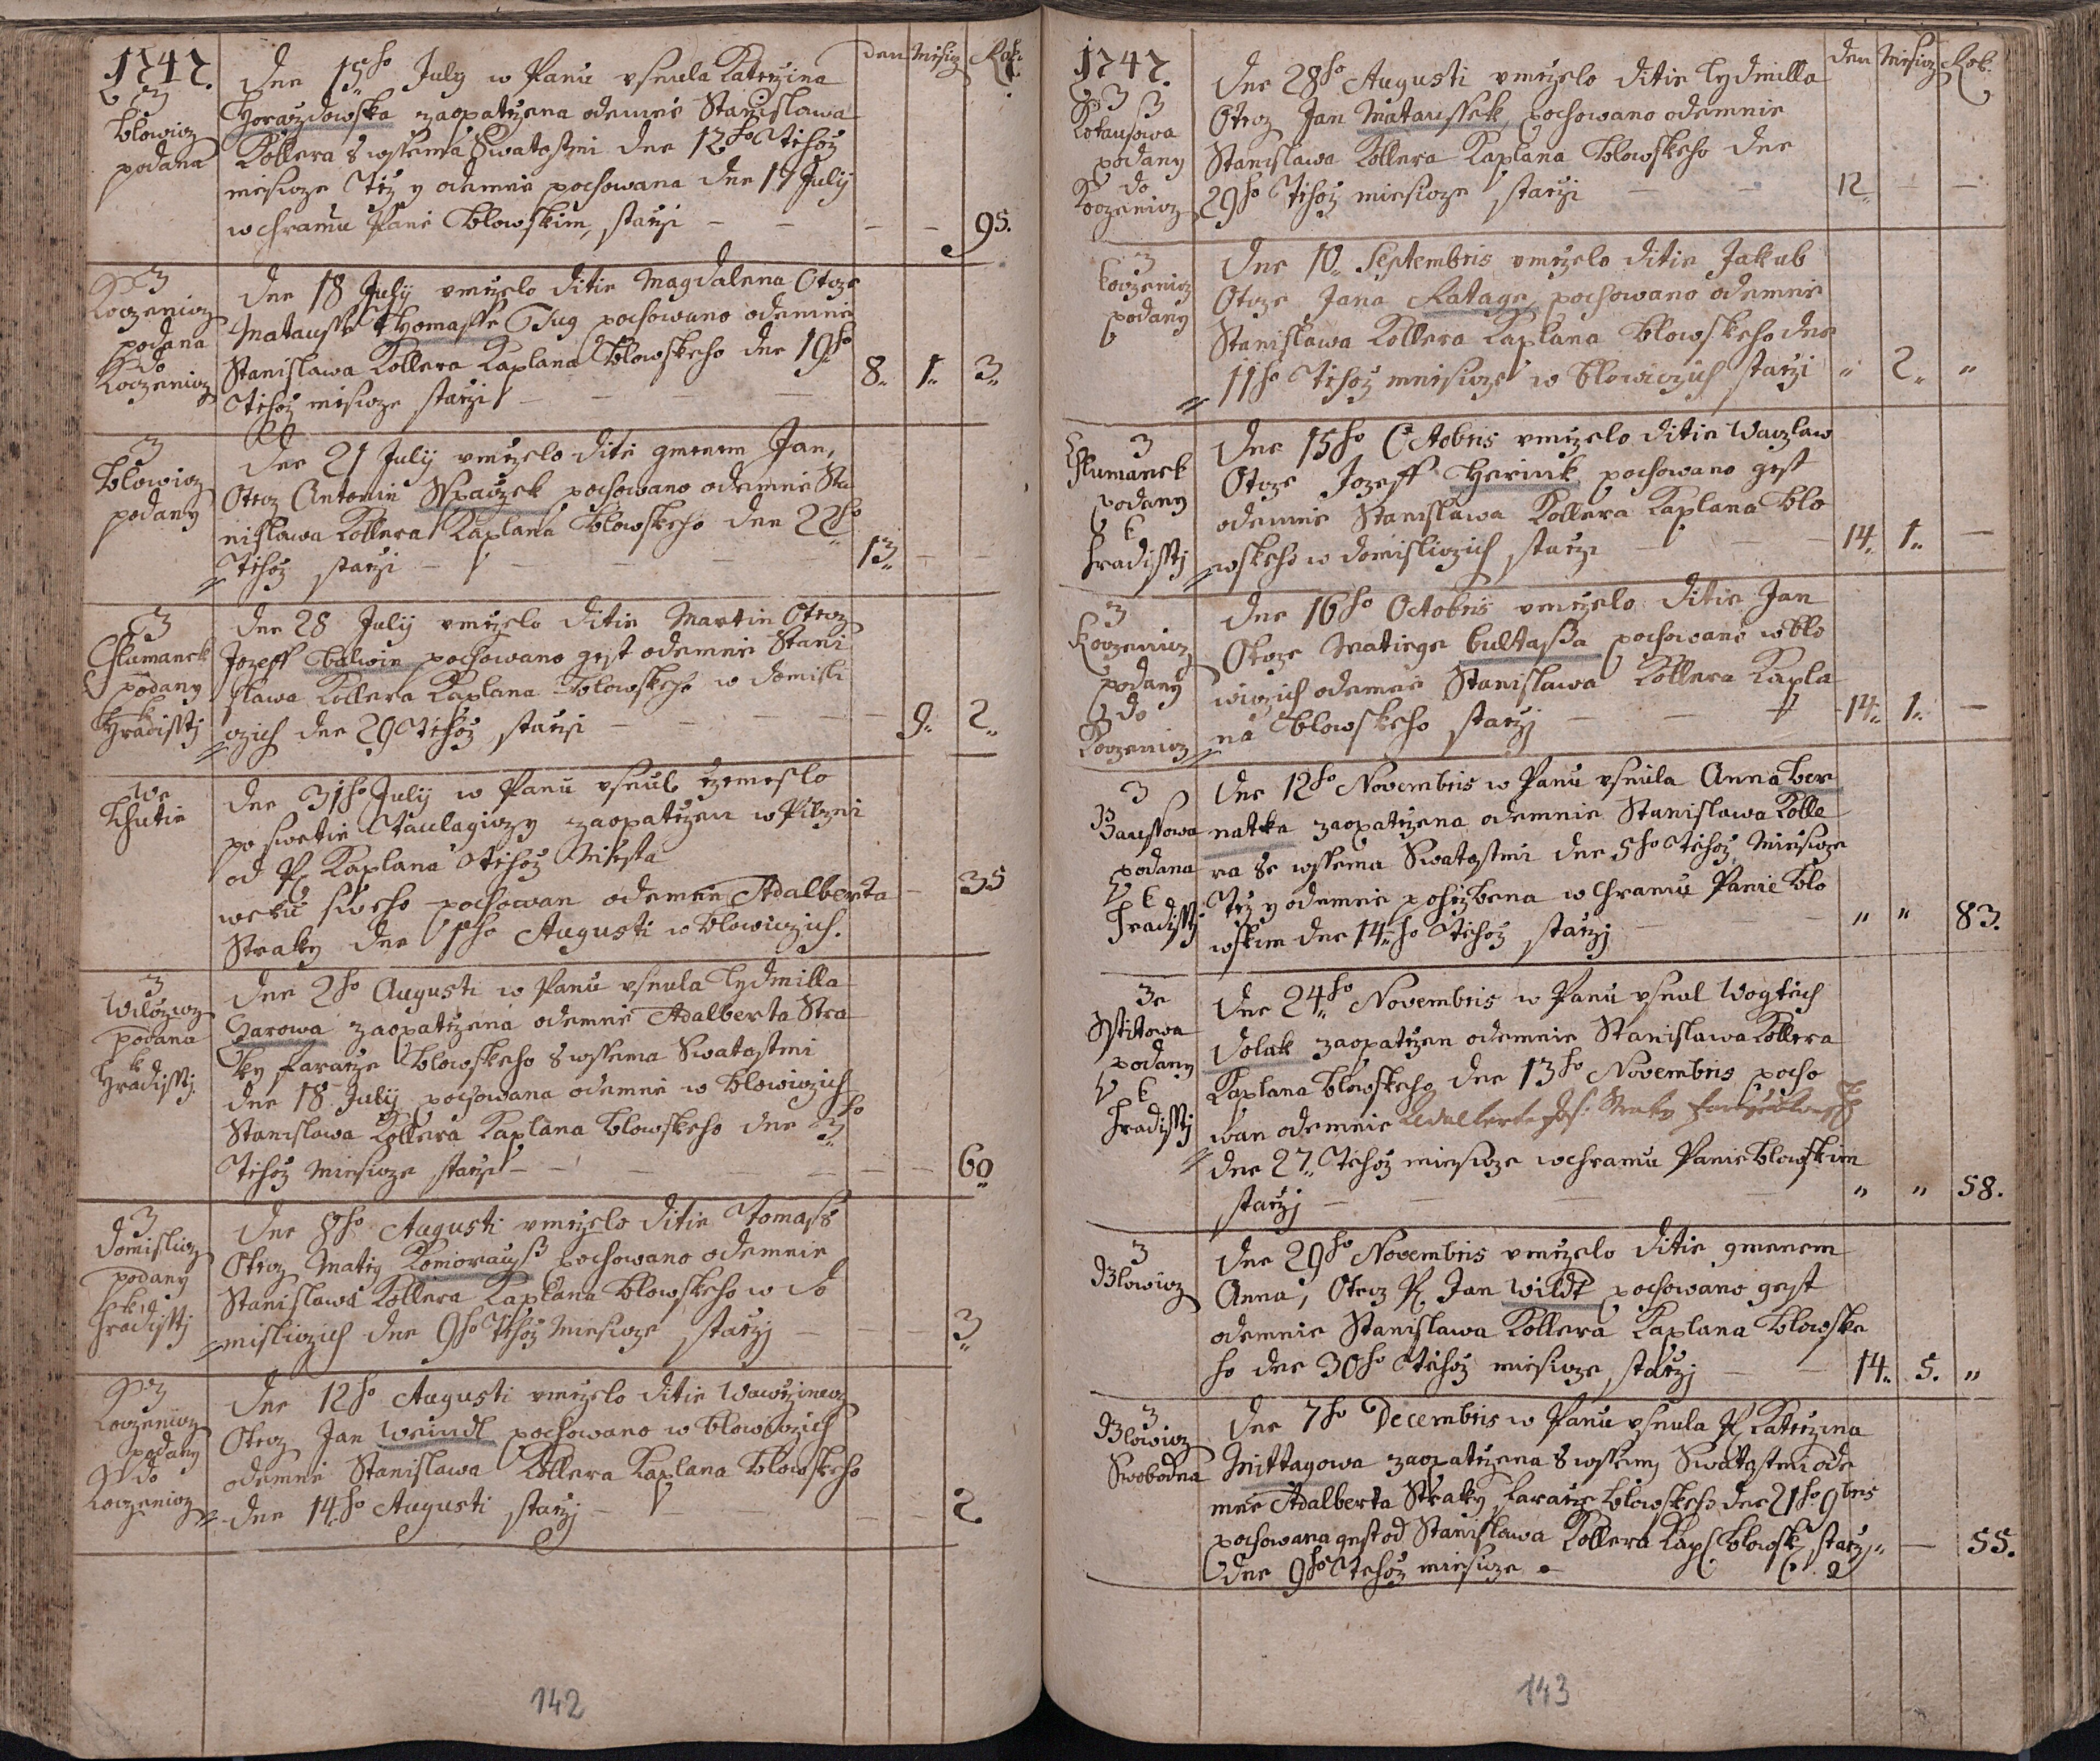 1747.
den Mesicz Rok.
3
blowicz
podana
dne 15ho July w Panu usnula Katerzina
Horazdowska zaopatrzena odemne Stanislawa
Kollera s wssema Swatostmi dne 12ho Tehoz
mesicze Tez y odemne pochowana dne 17 Julij
w chramu Pane blowskim, starzi – – – – 95.
3
Kotzenicz
podana
do
Kotzenicz
dne 18 Julij umrzelo ditie Magdalena Otcze
Matausse Thomasse pochowano odemnie
Stanislawa Kollera Kaplana blowskeho dne 19ho
Tehoz mesicze starzi – – – 8. 1. 3.
3
blowicz
podany
dne 21 Julij umrzelo dite gmenem Jan,
Otecz Antonin Sspaczek pochowano odemne Sta
nislawa Kollera Kaplana blowskeho dne 22ho
Tehoz starzi – – – – 13. – –
3
Chlumanek
podany
k
Hradissti
dne 28 Julij umrzelo ditie Martin Otecz
Jozeff balwin pochowano gest odemnie Stani
slawa Kollera Kaplana blowskeho w domisli
czich dne 29 Tehoz starzi – – – – 9. 2.
We
Lhutie
dne 31ho July w Panu usnul rzemeslo
po swetie zaopatrzen w Pilzni
od P. Kaplana Tehoz Miesta
weku sweho pochowan odemne Adalberta – 35
Straky dne 1ho Augusti w blowiczich.
3
podana
k
Hradissti
dne 2ho Augusti w Panu usnula Lydmilla
zaopatrzena odemne Adalberta Stra
ky fararze blowskeho s wssema Swatostmi
dne 18 Julij pochowana odemne w blowiczich
Stanislawa Kollera Kaplana blowskeho dne 3ho
Tehoz Miesicze starzi – – – – – 60
3
domislicz
podany
k
Hradissti
dne 8ho Augusti umrzelo ditie Tomass
Otecz Matig Komoraus pochowano odemnie
Stanislawa Kollera Kaplana blowskeho w do
misliczich dne 9ho Tehoz Miesicze starzj – – – 3
z
Kotzenicz
podany
do
Kotzenicz
dne 12ho Augusti umrzelo ditie Wawrzinecz
Otecz Jan Weindl pochowano w blowiczich
odemne Stanislawa Kollera Kaplana blowskeho
dne 14ho Augusti starzj – – – – – 2.
142
1747.
den Mesicz Rok.
3
Kotausowa
podany
do
Kotzenicz
dne 28ho Augusti umrzelo ditie Lydmilla
Otecz Jan Mataussek, pochowano odemnie
Stanislawa Kollera Kaplana blowskeho dne
29ho Tehoz miesicze starzi – – 12. – –
3
Kotzenicz
podany
dne 10. Septembris umrzelo ditie Jakub
Otcze Jana Ratage, pochowano odemnie
Stanislawa Kollera Kaplana blowskeho dne
11ho Tehoz miesicze w blowiczich starzi " 2. "
3
Chlumanek
podany
k
Hradissti
dne 15ho Octobris umrzelo ditie Waczlaw
Otcze Jozeff Herink pochowano gest
odemnie Stanislawa Kollera Kaplana blo
wskeho w domisliczich starzi – – 14. 1. –
3
Kotzenicz
podany
do
Kotzenicz
dne 16ho Octobris umrzelo ditie Jan
Otcze Matiege bultassa pochowano w blo
wiczich odemne Stanislawa Kollera Kapla
na blowskeho starzj – – – 14. 1. –
3
podana
k
Hradissti
dne 12ho Novembris w Panu usnula Anna ber
natka zaopatrzena odemnie Stanislawa Kolle
ra se wssema Swatostmi dne 5ho Tehoz Miesicze
Tez y odemne pohrzbena w chramu Panie blo
wskim dne 14ho Tehoz starzj – – " " 83.
Ze
Sstitowa
podany
k
Hradissti
dne 24ho Novembris w Panu usnul Wogtiech
dolak zaopatrzen odemnie Stanislawa Kollera
Kaplana blowskeho dne 13ho Novembris pocho
wan odemnie Adalberta Jos: Straky
dne 27. Tehoz miesicze w chramu Panie blowskim
starzj – – – – " " 58.
3
Blowicz
dne 29ho Novembris umrzelo ditie gmenem
Anna, Otecz P. Jan Wildt pochowano gest
odemnie Stanislawa Kollera Kaplana blowske
ho dne 30ho Tehoz miesicze, starzj – – 14. 5. "
3
Blowicz
Swobodna
dne 7ho Decembris w Panu usnula P. Katerzina
Mittagowa zaopatrzena s wssemj Swatostmi ode
mne Adalberta Straky fararze blowskeho dne 21ho 9bris
pochowana gest od Stanislawa Kollera Kapl. blowsk: starzj " – 55.
dne 9ho Tehoz miesicze
143